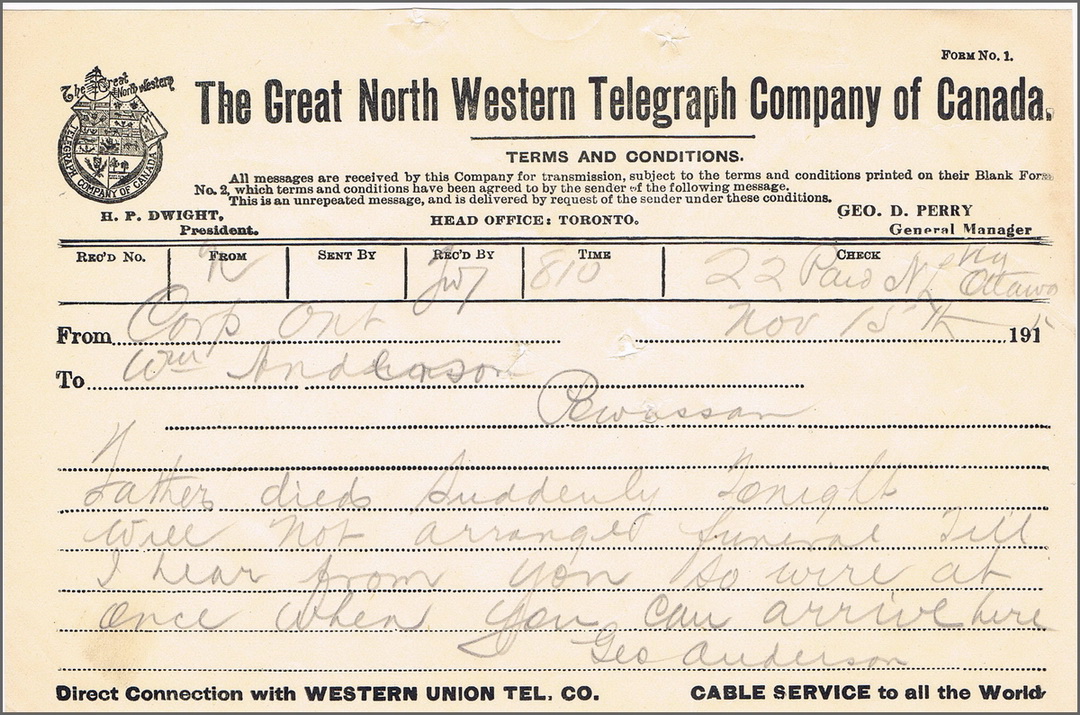 FORM No. 1.
The Great North Western
TELEGRAPH COMPANY OF CANADA
The Great North Western Telegraph Company of Canada.
TERMS AND CONDITIONS.
All messages are received by this Company for transmission, subject to the terms and conditions printed on their Blank Form
No. 2, which terms and conditions have been agreed to by the sender of the following message.
This is an unrepeated message, and is delivered by request of the sender under these conditions.
H. P. DWIGHT,
President.
HEAD OFFICE: TORONTO.
GEO. D. PERRY
General Manager
REC'D No. FROM SENT BY REC'D BY TIME CHECK
810 22 Paid NL Ottawa
From Corp Ont Nov 15th 191
To Wm Anderson
Father died Suddenly Tonight
will not arrange funeral Till
I hear from you so wire at
once when you can arrive here
Geo Anderson
Direct Connection with WESTERN UNION TEL. CO. CABLE SERVICE to all the World